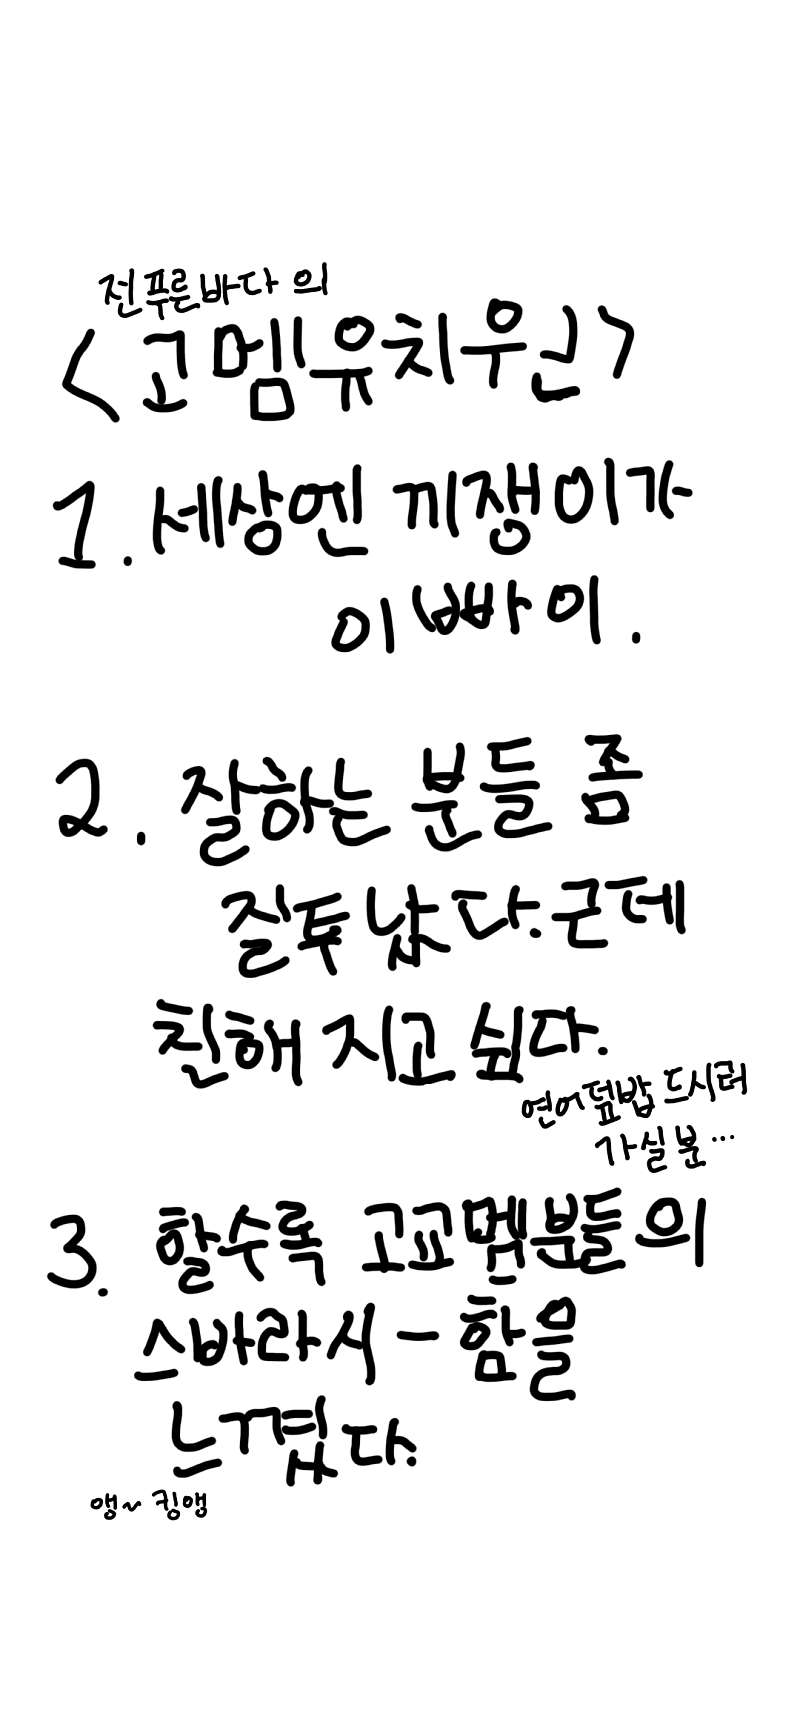 전푸른바다 의
<고멤유치우원>
1. 세상엔 끼쟁이가
이빠이.
2. 잘하는 분들 좀
질투 났다. 근데
친해 지고 싶다.
연어덮밥 드시러
가실 분...
3. 할수록 고교멤분들의
스바라시-함을
느꼈다.
앵~ 킹앵